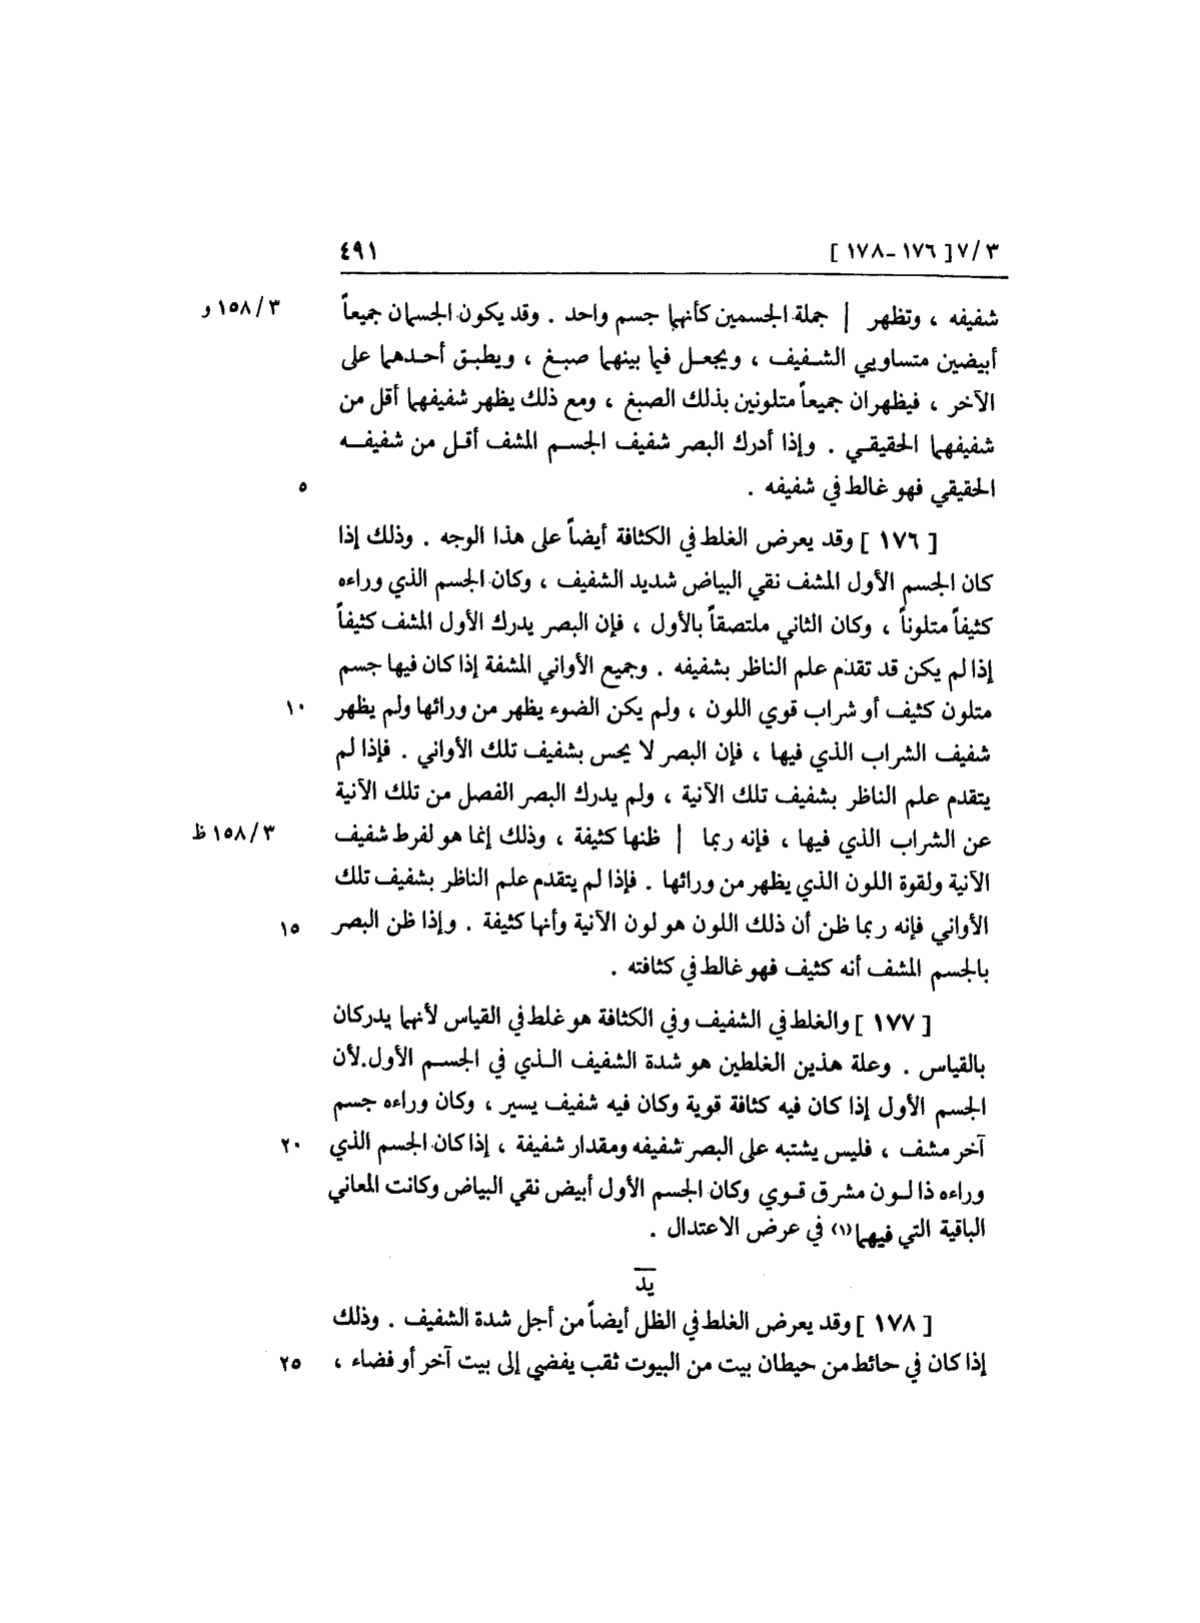 ٣/٧[ ١٧٦-١٧٨ ] ٤٩١
شفيفه ، وتظهر | جملة الجسمين كأنهما جسم واحد . وقد يكون الجسمان جميعاً ٣/١٥٨ و
أبيضين متساويي الشفيف ، ويجعل فيما بينهما صبغ ، ويطبق أحدهما على
الآخر ، فيظهران جميعاً متلونين بذلك الصبغ ، ومع ذلك يظهر شفيفهما أقل من
شفيفهما الحقيقي . وإذا أدرك البصر شفيف الجسم المشف أقل من شفيفه
الحقيقي فهو غالط في شفيفه . ٥
[ ١٧٦ ] وقد يعرض الغلط في الكثافة أيضاً على هذا الوجه . وذلك إذا
كان الجسم الأول المشف نقي البياض شديد الشفيف ، وكان الجسم الذي وراءه
كثيفاً متلوناً ، وكان الثاني ملتصقاً بالأول ، فإن البصر يدرك الأول المشف كثيفاً
إذا لم يكن قد تقدم علم الناظر بشفيفه . وجميع الأواني المشفة إذا كان فيها جسم
متلون كثيف أو شراب قوي اللون ، ولم يكن الضوء يظهر من ورائها ولم يظهر ١٠
شفيف الشراب الذي فيها ، فإن البصر لا يحس بشفيف تلك الأواني . فإذا لم
يتقدم علم الناظر بشفيف تلك الآنية ، ولم يدرك البصر الفصل من تلك الآنية
عن الشراب الذي فيها ، فإنه ربما | ظنها كثيفة ، وذلك إنما هو لفرط شفيف ٣/١٥٨ ظ
الآنية ولقوة اللون الذي يظهر من ورائها . فإذا لم يتقدم علم الناظر بشفيف تلك
الأواني فإنه ربما ظن أن ذلك اللون هو لون الآنية وأنها كثيفة . وإذا ظن البصر ١٥
بالجسم المشف أنه كثيف فهو غالط في كثافته .
[ ١٧٧ ] والغلط في الشفيف وفي الكثافة هو غلط في القياس لأنهما يدركان
بالقياس . وعلة هذين الغلطين هو شدة الشفيف الذي في الجسم الأول.لأن
الجسم الأول إذا كان فيه كثافة قوية وكان فيه شفيف يسير ، وكان وراءه جسم
آخر مشف ، فليس يشتبه على البصر شفيفه ومقدار شفيفة ، إذا كان الجسم الذي ٢٠
وراءه ذا لون مشرق قوي وكان الجسم الأول أبيض نقي البياض وكانت المعاني
الباقية التي فيهما(١) في عرض الاعتدال .
يد
[ ١٧٨ ] وقد يعرض الغلط في الظل أيضاً من أجل شدة الشفيف . وذلك
إذا كان في حائط من حيطان بيت من البيوت ثقب يفضي إلى بيت آخر أو فضاء ، ٢٥